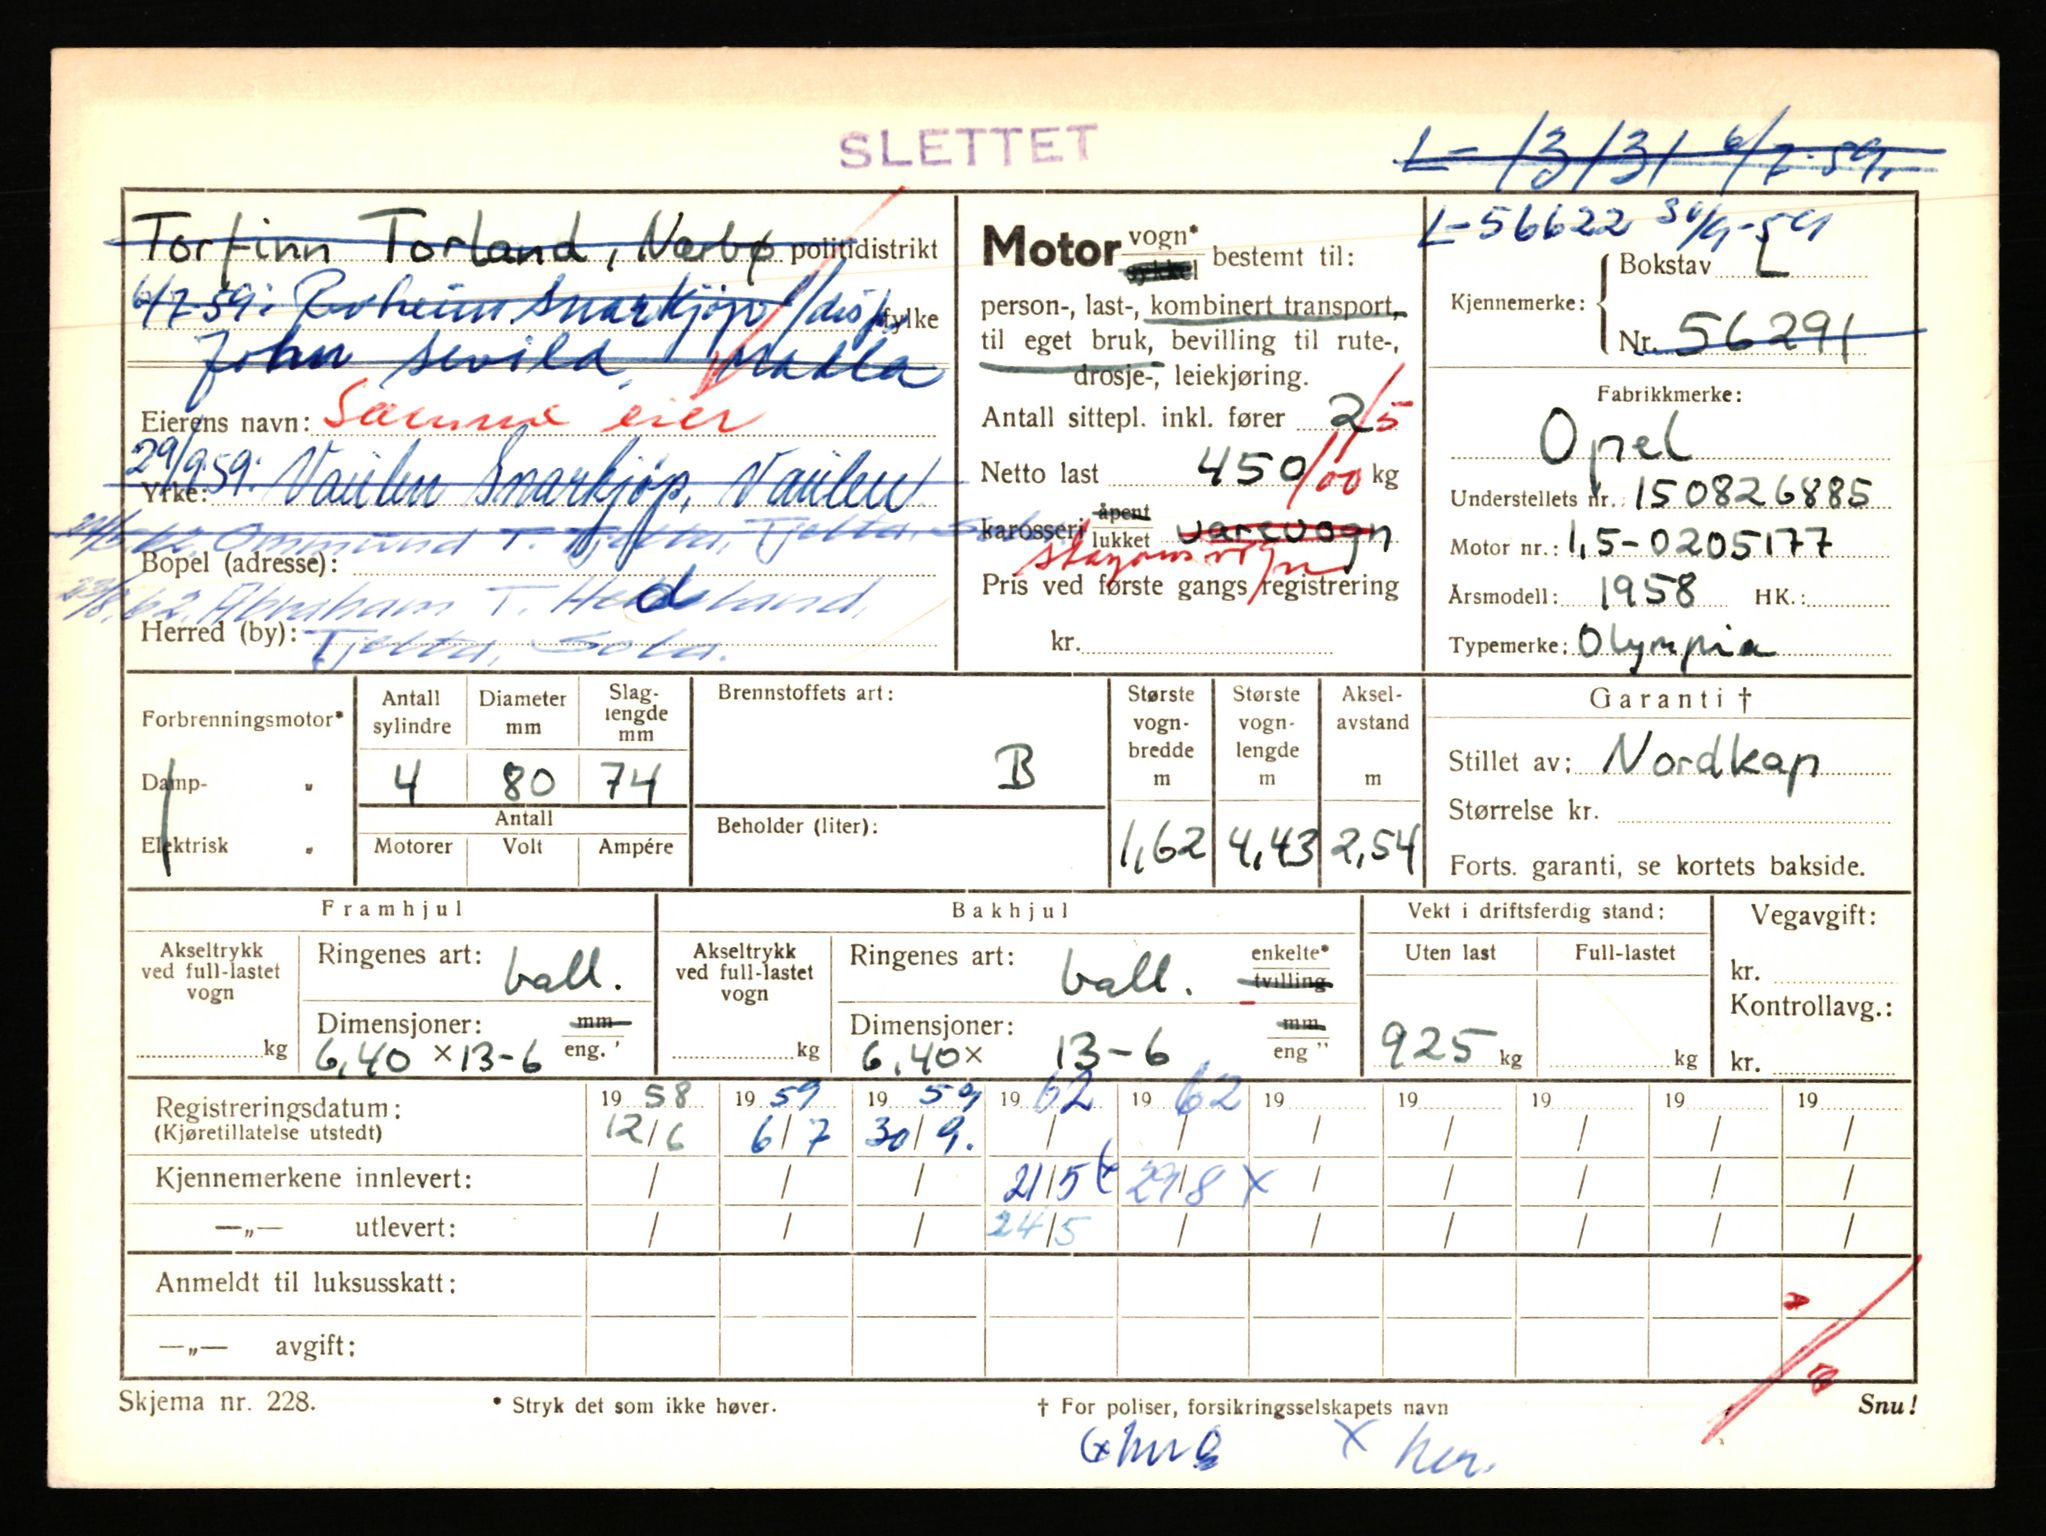 SLETTET
L-13131 6/7-59,-
L-56622 30/9-59
Torfinn Torland, Nærbø politidistrikt
6/7-59: Snarkjøp / disp. fylke
John
Eierens navn: Samme eier
29/9.59: Vaulen Snarkjøp, Vaulen
Yrke:
Ommund T. Tjelta, Tjelta, Sola
Bopel (adresse):
23/8.62. Abraham T.
Herred (by): Tjelta, Sola.
Motor vogn* sykkel bestemt til:
person-, last-, kombinert transport,
til eget bruk, bevilling til rute-,
drosje-, leiekjøring.
Antall sittepl. inkl. fører 2/5
Netto last 450/100 kg
karosseri åpent lukket varevogn
stasjonsvogn
Pris ved første gangs registrering
kr.
Kjennemerke: Bokstav L
Nr. 56291
Fabrikkmerke:
Opel
Understellets nr.: 150826885
Motor nr.: 1,5-0205177
Årsmodell: 1958 HK.:
Typemerke: Olympia
Forbrenningsmotor*
Damp- "
Elektrisk "
Antall sylindre Diameter mm Slaglengde mm
4 80 74
Antall
Motorer Volt Ampére
Brennstoffets art:
B
Beholder (liter):
Største vognbredde m Største vognlengde m Akselavstand m
1,62 4,43 2,54
Garanti †
Stillet av: Nordkap
Størrelse kr.
Forts. garanti, se kortets bakside.
Framhjul
Akseltrykk ved full-lastet vogn
kg
Ringenes art: ball.
Dimensjoner: mm eng. "
6,40 ×13-6
Bakhjul
Akseltrykk ved full-lastet vogn
kg
Ringenes art: ball. enkelte* tvilling
Dimensjoner: mm eng "
6,40× 13-6
Vekt i driftsferdig stand:
Uten last Full-lastet
925 kg kg
Vegavgift:
kr.
Kontrollavg.:
kr.
Registreringsdatum: 19 58 19 59 19 59 19 62 19 62 19 19 19 19 19
(Kjøretillatelse utstedt) 12/6 6/7 30/9. / / / / / / /
Kjennemerkene innlevert: / / / 21/5 x 29/8 x / / / / /
—„— utlevert: / / / 24/5 / / / / / /
Anmeldt til luksusskatt:
—„— avgift:
Skjema nr. 228. * Stryk det som ikke høver. † For poliser, forsikringsselskapets navn Snu!
x her.